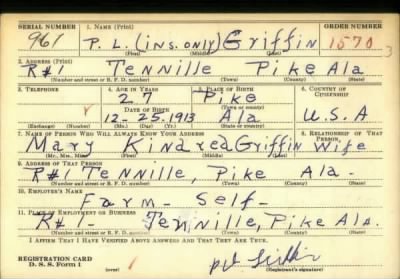 SERIAL NUMBER 1. NAME (Print) ORDER NUMBER
961 P. L. (ins. only) Griffin 1570
(First) (Middle) (Last)
2. ADDRESS (Print)
R#1 Tennille Pike Ala
(Number and street or R. F. D. number) (Town) (County) (State)
3. TELEPHONE 4. AGE IN YEARS 5. PLACE OF BIRTH 6. COUNTRY OF CITIZENSHIP
27 Pike
DATE OF BIRTH (Town or county)
12-25-1913 Ala U.S.A
(Exchange) (Number) (Mo.) (Day) (Yr.) (State or country)
7. NAME OF PERSON WHO WILL ALWAYS KNOW YOUR ADDRESS 8. RELATIONSHIP OF THAT PERSON
Mary Kindred Griffin Wife
(Mr., Mrs., Miss) (First) (Middle) (Last)
9. ADDRESS OF THAT PERSON
R#1 Tennille, Pike Ala-
(Number and street or R. F. D. number) (Town) (County) (State)
10. EMPLOYER'S NAME
Farm- Self-
11. PLACE OF EMPLOYMENT OR BUSINESS
R#1- Tennille, Pike Ala.
(Number and street or R. F. D. number) (Town) (County) (State)
I AFFIRM THAT I HAVE VERIFIED ABOVE ANSWERS AND THAT THEY ARE TRUE.
REGISTRATION CARD
D. S. S. Form 1 (over) (Registrant's signature)